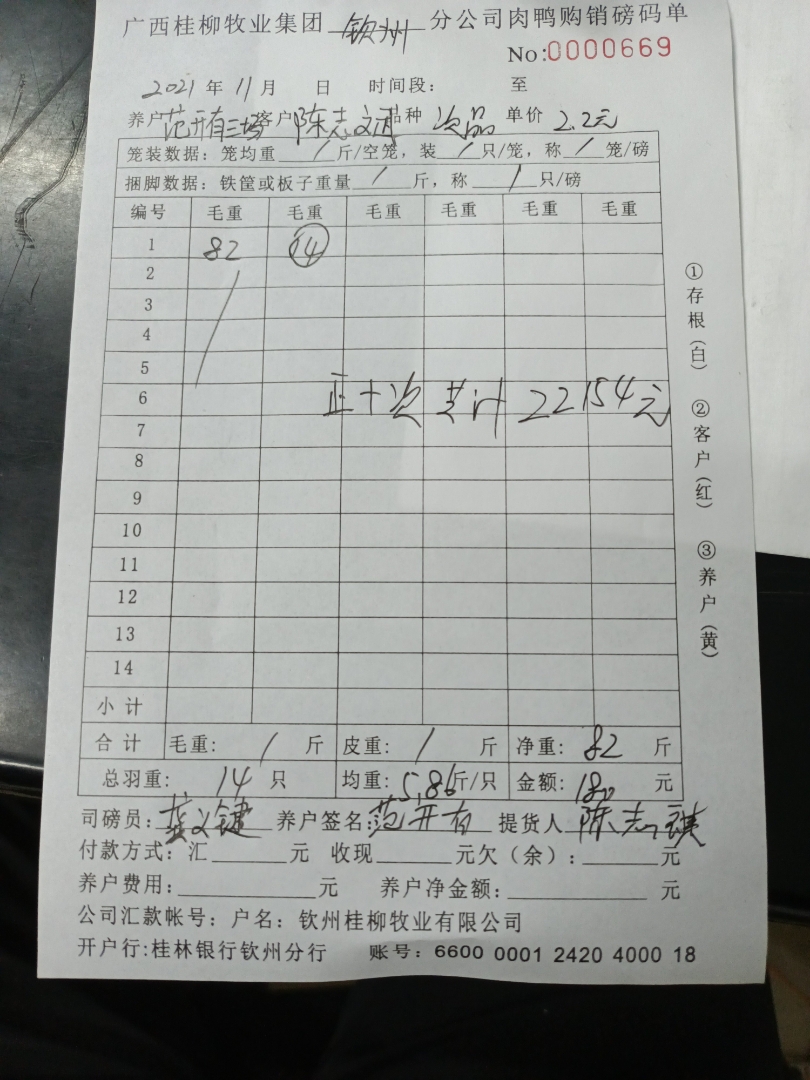 广西桂柳牧业集团 钦州 分公司肉鸭购销磅码单
No:0000669
2021年11月 日 时间段: 至
养户范开有三场客户陈志 品种 次品 单价 2.2元
笼装数据:笼均重 / 斤/空笼,装 / 只/笼,称 / 笼/磅
捆脚数据:铁筐或板子重量 / 斤,称 / 只/磅
编号 毛重 毛重 毛重 毛重 毛重 毛重
1 82 14
2
3
4
5
6 正+次 共计 22154元
7
8
9
10
11
12
13
14
小计
合计 毛重: / 斤 皮重: / 斤 净重: 82 斤
总羽重: 14 只 均重: 5.86斤/只 金额: 180 元
司磅员: 养户签名:范开有 提货人 陈志
付款方式:汇 元 收现 元欠(余): 元
养户费用: 元 养户净金额: 元
公司汇款帐号:户名:钦州桂柳牧业有限公司
开户行:桂林银行钦州分行 账号:6600 0001 2420 4000 18
①存根(白) ②客户(红) ③养户(黄)